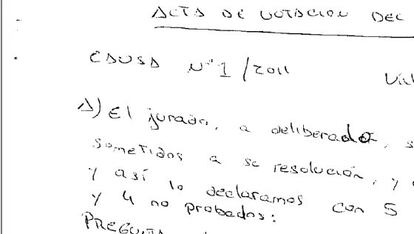 ACTA DE VOTACION DEL
CAUSA Nº 1/2011
A) El jurado, a deliberado,
sometidos a se resolución, y
y así lo declaramos con 5
y 4 no probados: